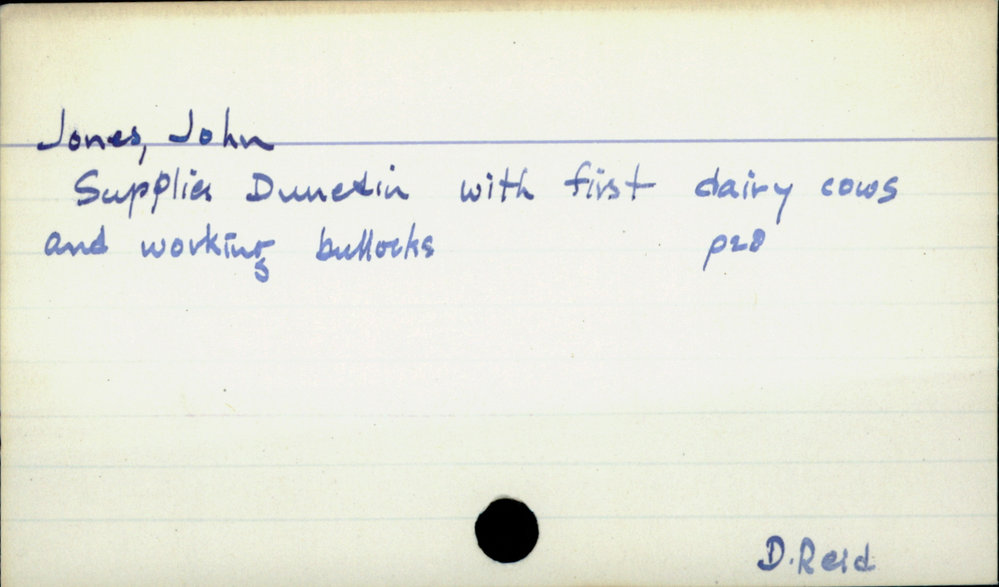 Jones, John
Supplies Dunedin with first dairy cows
and working bullocks p28
D. Reid